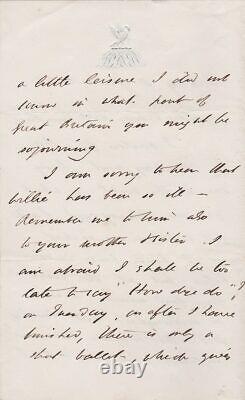 a little leisure I did not
know in what part of
Great Britain you might be
sojourning
I am sorry to hear that
Willie has been so ill –
Remember me to him also
to your mother & sister. I
am afraid I shall be too
late to say "How dye do"!
on Tuesday, as after I have
finished, there is only a
short ballet, which gives
© ebay.com